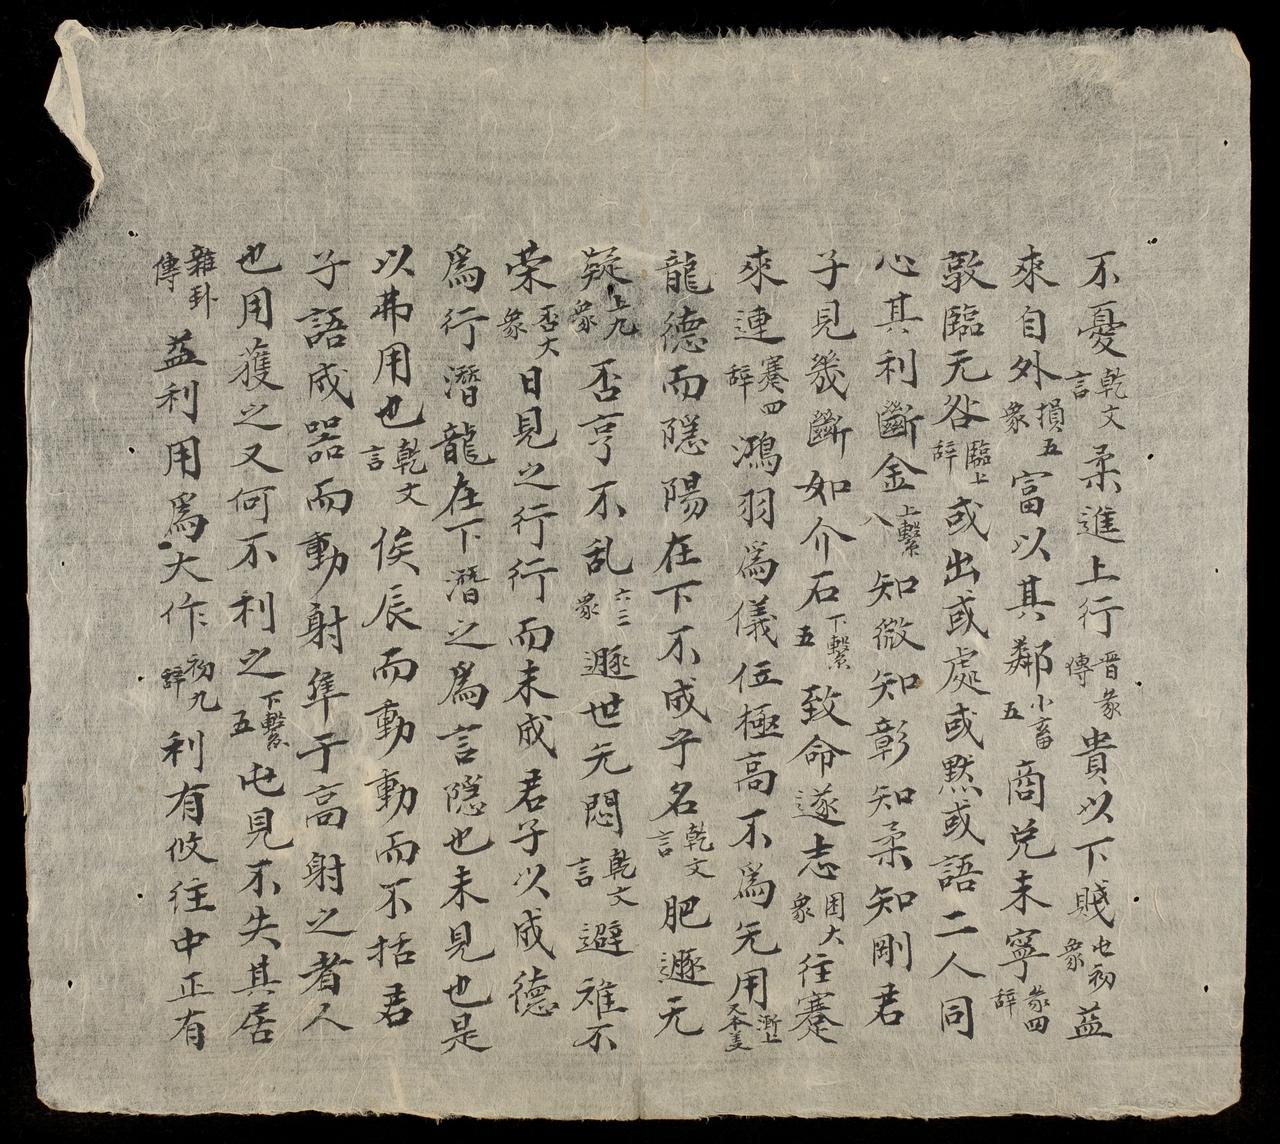 不憂乾文言柔進上行晋彖傳貴以下賤屯初象益
來自外損五象富以其鄰小畜五商兌未寧象四辭
敦臨无咎臨上辭或出或處或黙或語二人同
心其利斷金上繫八知微知彰知柔知剛君
子見幾斷如介石下繫五致命遂志困大象往蹇
來連蹇四辭鴻羽爲儀位極高不爲无用漸上又本義
龍德而隱陽在下不成乎名乾文言肥遯无
疑上九象否亨不乱六二象遯世无悶乾文言避难不
荣否大象日見之行行而未成君子以成德
爲行潛龍在下潛之爲言隱也未見也是
以弗用也乾文言俟辰而動動而不括君
子語成器而動射隼于高射之者人
也用獲之又何不利之下繫五屯見不失其居
雜卦傳益利用爲大作初九辭利有攸往中正有